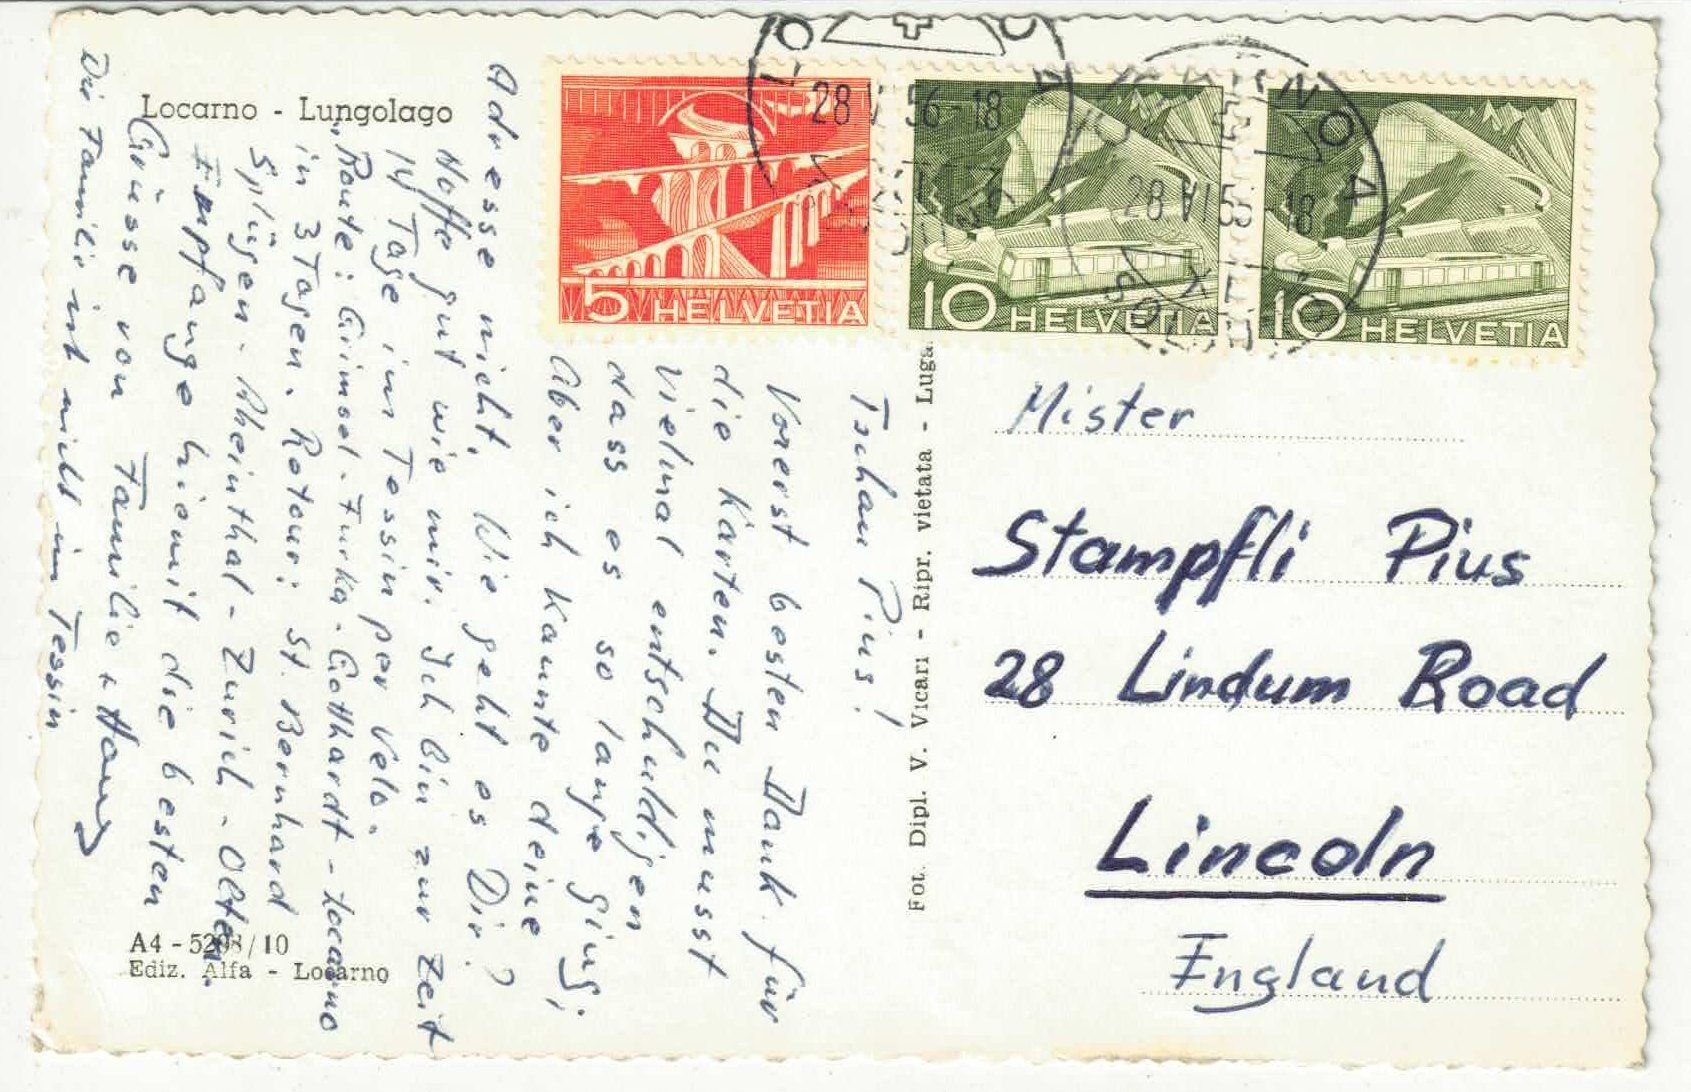 Locarno - Lungolago
Tschau Pius!
Vorerst besten Dank für
die Karten. Du musst
vielmal entschuldigen
dass es so lange ging;
Aber ich kannte deine
Adresse nicht. Wie geht es Dir?
Hoffe gut wie mir. Ich bin zur Zeit
14 Tage im Tessin per Velo.
Route: Grimsel-Furka-Gotthardt-Locarno
in 3 Tagen. Retour: St. Bernhard
Splügen-Rheinthal-Zürich-Olten.
Empfange hiemit die besten
Grüsse von Familie +
Die Familie ist nicht im Tessin
A4 - 5293/10
Ediz. Alfa - Locarno
Fot. Dipl. V. Vicari - Ripr. vietata - Luga
5 HELVETIA
10 HELVETIA
10 HELVETIA
28 VI 56-18
28 VI 56-18
Mister
Stampfli Pius
28 Lindum Road
Lincoln
England